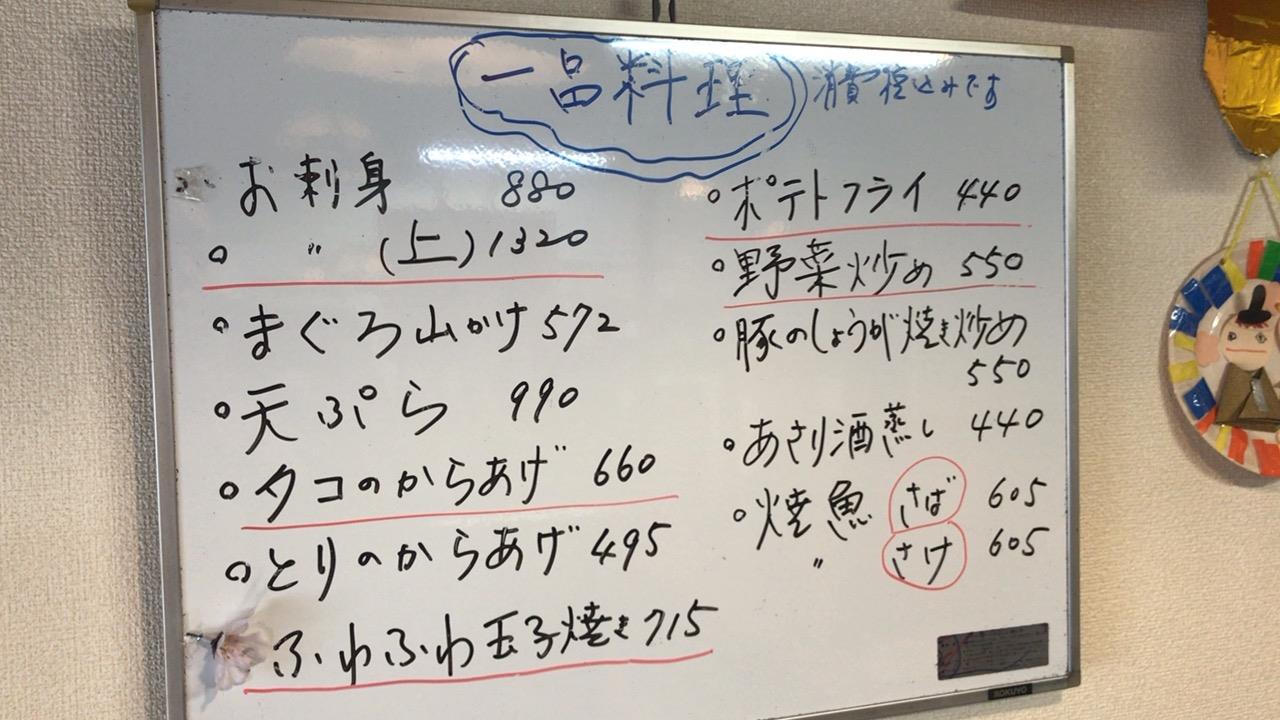 一品料理 消費税込みです
お刺身 880
〃 (上) 1320
まぐろ山かけ 572
天ぷら 990
タコのからあげ 660
とりのからあげ 495
ふわふわ玉子焼き 715
ポテトフライ 440
野菜炒め 550
豚のしょうが焼き炒め
550
あさり酒蒸し 440
焼魚 さば 605
〃 さけ 605
KOKUYO